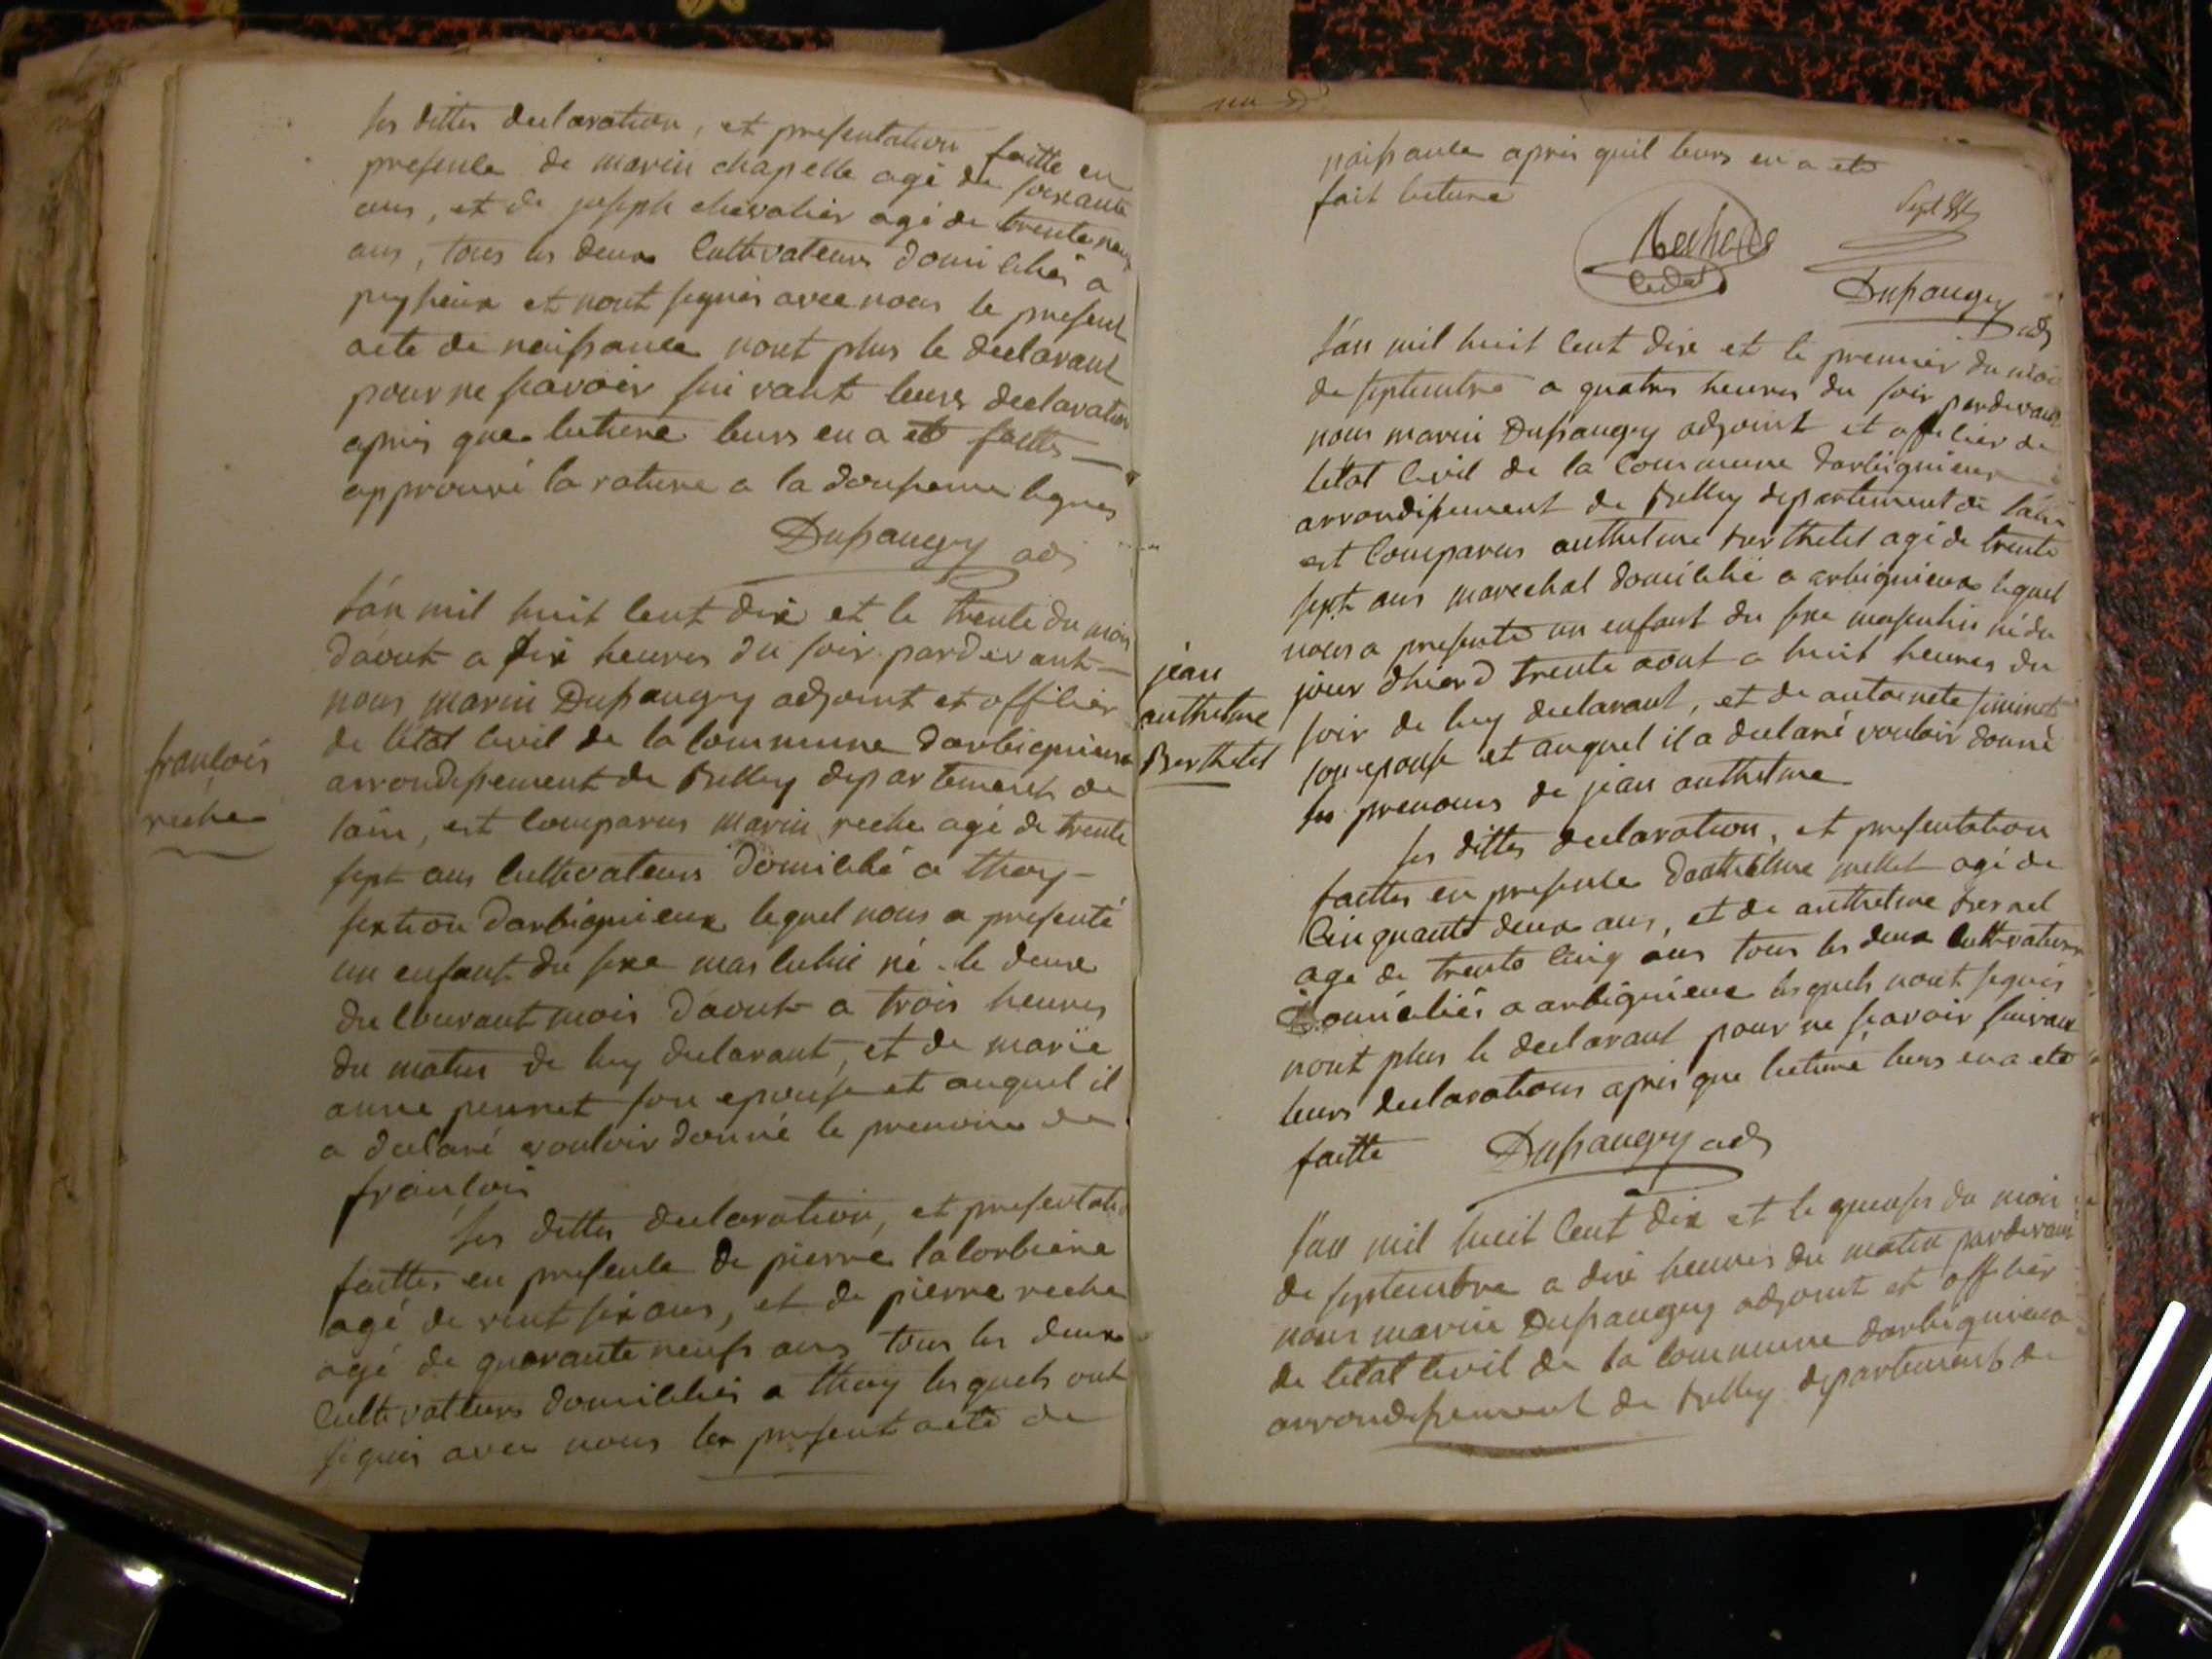 les dittes declaration, et presentation faitte en
presence de marin chapelle agé de soixante
ans, et de joseph chevalier agé de trente neuf
ans, tous les deux Cultivateurs domiciliés a
peyzieux et nont signés avec nous le present
acte de naissance nont plus le declarant
pour ne scavoir suivant leurs declaration
apres que lecture leurs en a eté faitte
approuvé la rature a la lignes
Dupaugey adj
Lan mil huit cent dix et le trente du mois
daout a six heures du soir pardevant
nous marin Dupaugey adjoint et officier
de létat civil de la commune darbignieux
arrondissement de Belley departement de
lain, est comparus marin reche agé de trente
sept ans cultivateurs domicilié a thoy
section darbignieux lequel nous a presenté
un enfant du sexe masculin né le deux
du courant mois daout a trois heures
du matin de luy declarant, et de marie
anne peunet son epouse et auquel il
a declaré vouloir donné le prenoms de
françois
les dittes declaration, et presentatio
faittes en presence de pierre lacorbiere
agé de vent six ans, et de pierre reche
agé de quarante neufs ans tous les deux
Cultivatteurs domiciliés a thoy lesquels ont
signés avec nous les present acte de
francois
reche
naissance apres quil leurs en a eté
fait lecture
Dupaugey adj
Lan mil huit cent dix et le premier du mois
de septembre a quatres heures du soir pardevant
nous marin Dupaugey adjoint et officier de
létat civil de la Commune darbignieux
arrondissement de Belley departement de lain
est Comparus anthelme berthelet agé de trente
sept ans marechal domicilié a arbignieux lequel
nous a presenté un enfant du sexe masculin né du
jour dhierd trente aout a huit heures du
soir de luy declarant, et de antoinete siminet
son epouse et auquel il a declaré vouloir donné
les prenoms de jean anthelme
les dittes declaration, et presentation
faittes en presence danthelme mellet agé de
Cinquante deux ans, et de anthelme bernel
age de trente cinq ans tous les deux cultivateurs
domiciliés a arbignieux lesquels nont signés
nont plus le declarant pour ne scavoir suivant
leurs declarations apres que lecture leurs en a eté
faitte Dupaugey adj
Lan mil huit cent dix et le quenses du mois
de septembre a dix heures du matin pardevant
nous marin Dupaugey adjoint et officier
de létat civil de la commune darbignieux
arrondissement de belley departement de
jean
anthelme
Berthelet